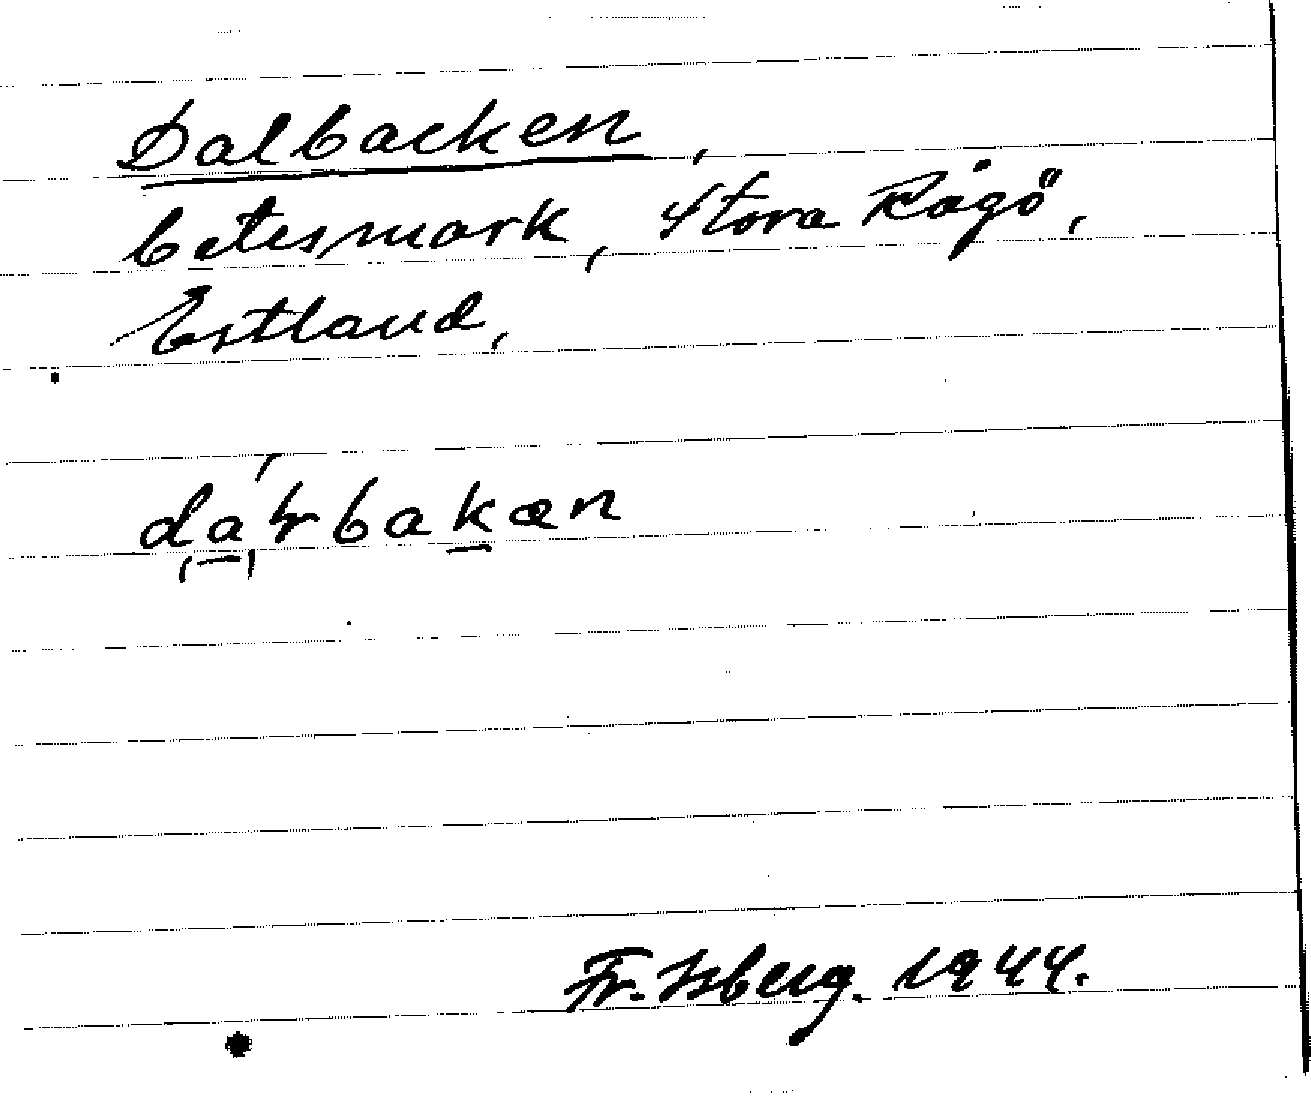 Dalbacken,
betesmark, Stora Rågö,
Estland,
da̱ꞎbaḵæn
Fr. Isberg. 1944.